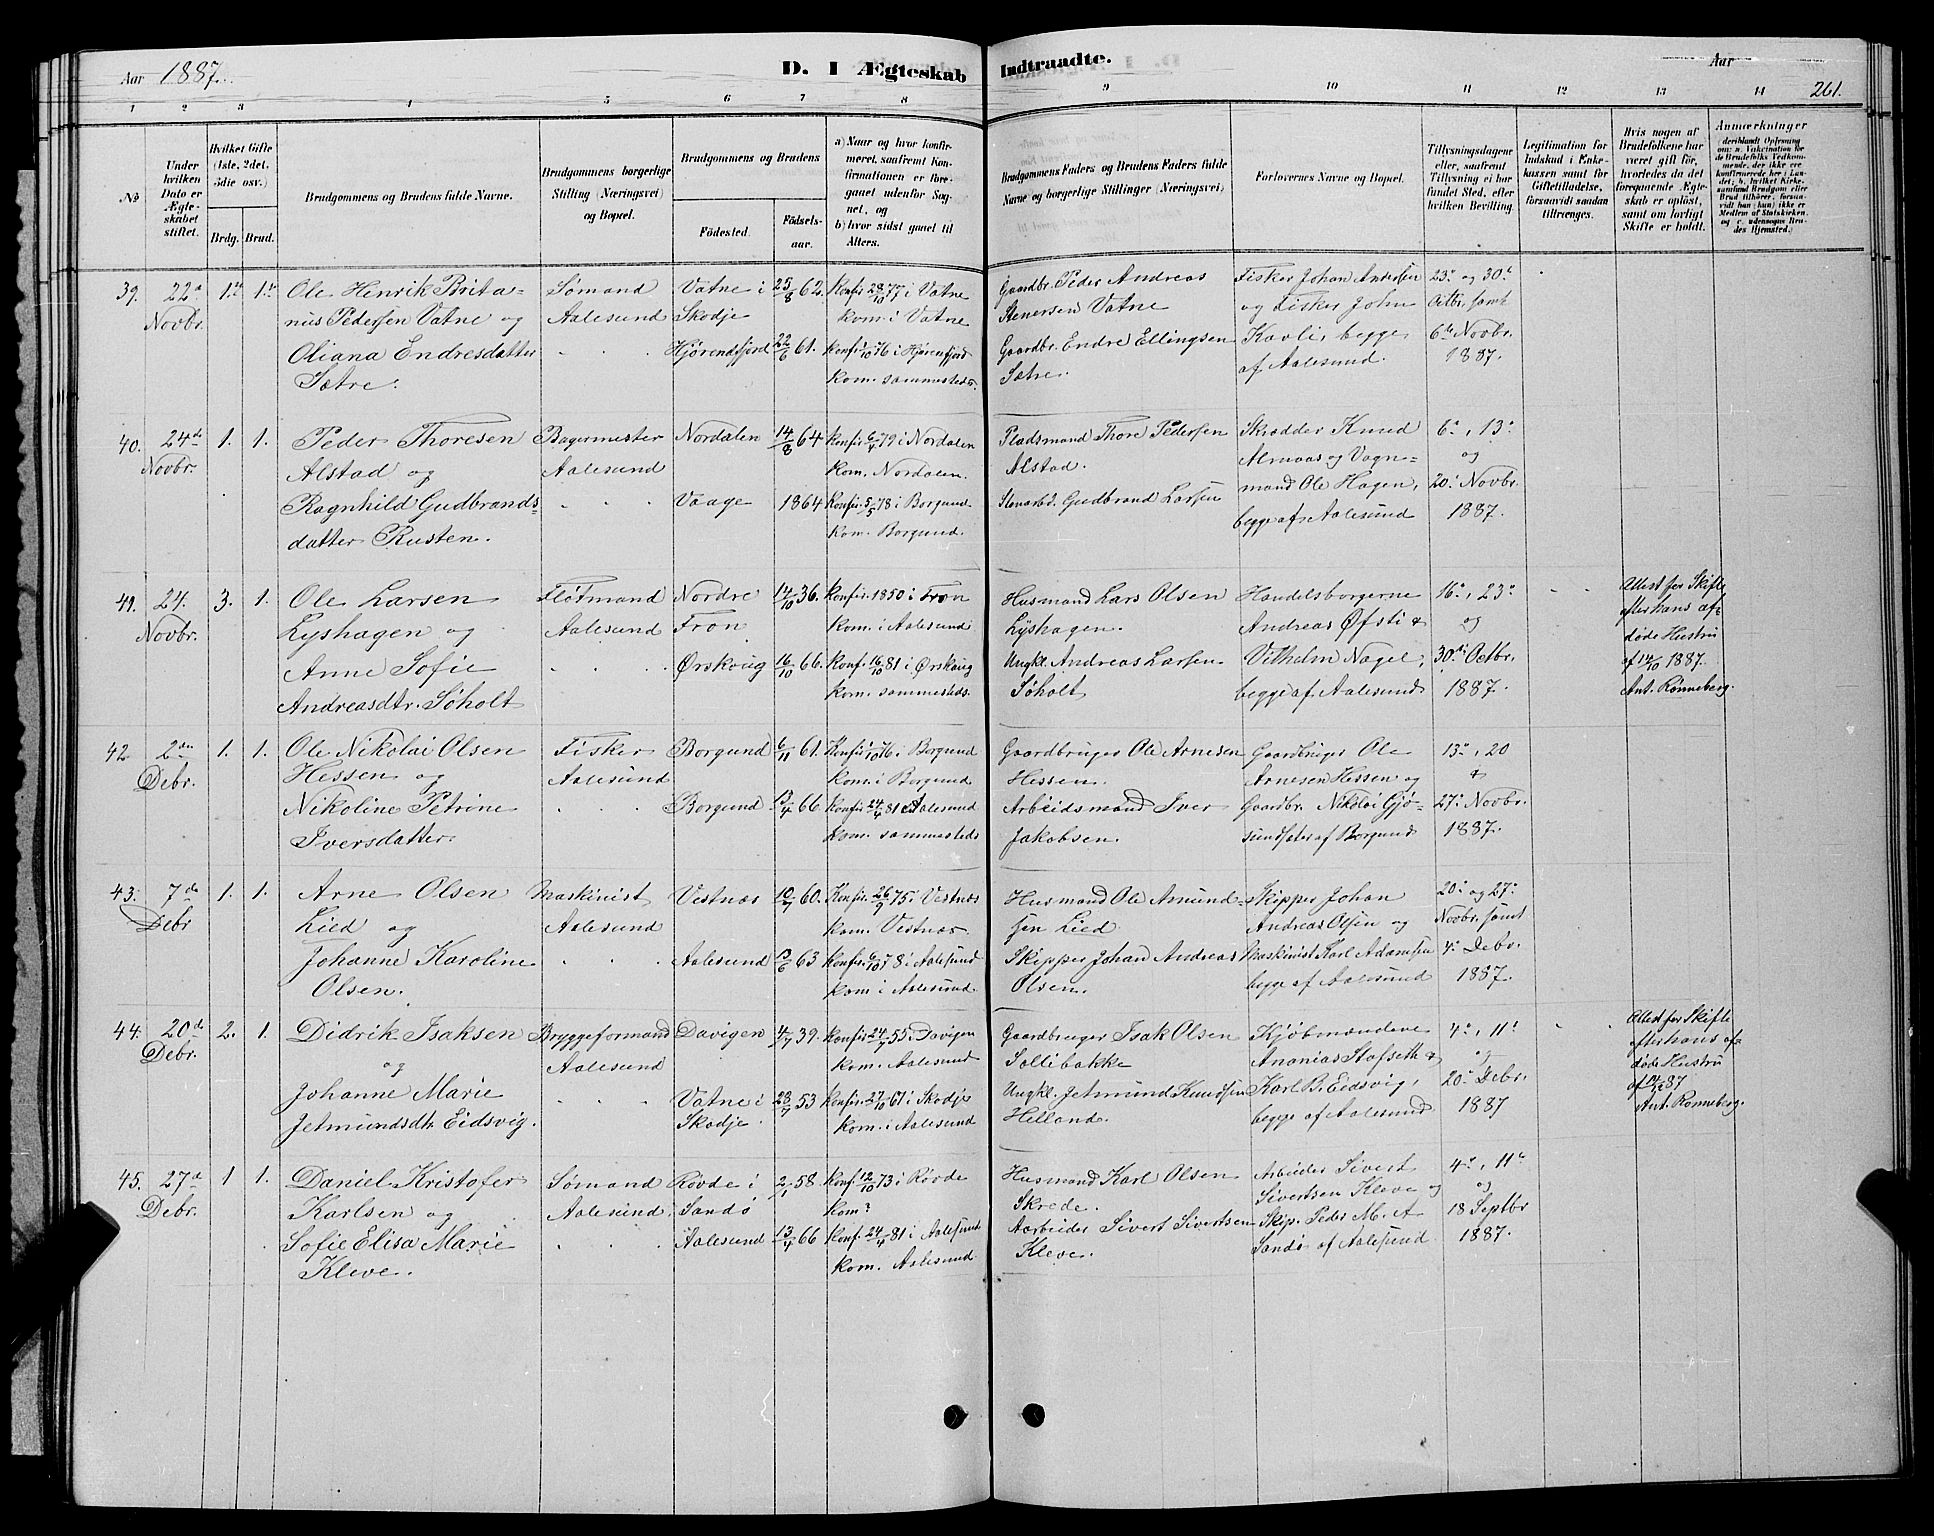 Aar 1887.
D. I Ægteskab Indtraadte.
Aar
261.
1 2 3 4 5 6 7 8 9 10 11 12 13 14
No
Under hvilken Dato er Ægteskabet stiftet.
Hvilket Gifte (1ste, 2det, 3die osv.)
Brdg. Brud.
Brudgommens og Brudens fulde Navne.
Brudgommens borgerlige Stilling (Næringsvei) og Bopæl.
Brudgommens og Brudens
Fødested.
Fødselsaar.
a) Naar og hvor konfirmeret, saafremt Konfirmationen er foregaaet udenfor Sognet, og
b) hvor sidst gaaet til Alters.
Brudgommens Faders og Brudens Faders fulde Navne og borgerlige Stillinger (Næringsvei)
Forlovernes Navne og Bopæl.
Tillysningsdagene eller, saafremt Tillysning ei har fundet Sted, efter hvilken Bevilling.
Legitimation for Indskud i Enkekassen samt for Giftetilladelse, forsaavidt saadan tiltrænges.
Hvis nogen af Brudefolkene har været gift før, hvorledes da det foregaaende Ægteskab er opløst, samt om lovligt Skifte er holdt.
Anmærkninger
39. 22de Novbr. 1ste 1ste
Ole Henrik Brita-
nus Pedersen Vatne og
Oliana Endresdatter
Sætre.
Sømand
Aalesund
Vatne i
Skodje
Hjørendfjord
25/8 62.
22/6 61.
Konfir 28/10 77 i Vatne
kom. i Vatne
Konfir 1/10 76 i Hjørenfjord
kom. sammesteds.
Gaardbr. Peder Andreas
Stenersen Vatne
Gaardbr. Endre Ellingsen
Sætre.
Fisker Johan Andersen
og Fisker John
Kavli, begge
af Aalesund.
23de og 30te
Octbr. samt
6te Novbr.
1887.
40. 24de Novbr. 1. 1.
Peder Thoresen
Alstad og
Ragnhild Gudbrands-
datter Rusten.
Bagermester
Aalesund
Nordalen
Vaage
14/8 64
1864
Konfir. 6/4 79 i Nordalen
kom. Nordalen.
Konfir. 5/5 78 i Borgund
kom. Borgund.
Pladsmand Thore Pedersen
Alstad.
Stenarbd. Gudbrand Larsen
Skrædder Knud
Almaas og Vogn-
mand Ole Hagen,
begge af Aalesund
6te, 13de
og
20de Novbr.
1887.
41. 24. Novbr. 3. 1.
Ole Larsen
Lyshagen og
Anne Sofie
Andreasdtr. Søholt
Fløtmand
Aalesund
Nordre
Fron
Ørskoug
14/10 36.
16/10 66.
Konfir. 1850 i Fron
kom. i Aalesund
Konf. 16/10 81 i Ørskoug
kom. sammesteds.
Husmand Lars Olsen
Lyshagen.
Ungkl. Andreas Larsen
Søholt
Handelsborgerne
Andreas Øfsti &
Vilhelm Nagel,
begge af Aalesund
16de, 23de
og
30te Octbr.
1887.
Attest for Skifte
efter hans af-
døde Hustru
af 14/10 1887.
Ant. Rønneberg.
42 2den Debr. 1. 1.
Ole Nikolai Olsen
Hessen og
Nikoline Petrine
Iversdatter.
Fisker
Aalesund
Borgund
Borgund
6/11 61.
13/4 66
Konfir 1/10 76. i Borgund
kom. i Borgund
Konfir. 24/4 81 i Aalesund
kom. sammesteds
Gaardbruger Ole Arnesen
Hessen.
Arbeidsmand Iver
Jakobsen.
Gaardbruger Ole
Arnesen Hessen og
Gaardbr. Nikolai Gjø-
sundsæter af Borgund
13de, 20
&
27de Novbr.
1887.
43. 7de Debr 1. 1.
Arne Olsen
Lied og
Johanne Karoline
Olsen.
Maskinist
Aalesund
Vestnæs
Aalesund
10/7 60.
13/6 63
Konfir. 26/9 75 i Vestnæs
kom. Vestnæs.
Konfir. 6/10 78 i Aalesund
kom i Aalesund.
Husmand Ole Amund-
sen Lied
Skipper Johan Andreas
Olsen.
Skipper Johan
Andreas Olsen og
Maskinist Karl Adamsen
begge af Aalesund
20de og 27de
Novbr. samt
4de Debr.
1887.
44. 20de Debr. 2. 1.
Didrik Isaksen
og
Johanne Marie
Jetmundsdtr. Eidsvig.
Bryggeformand
Aalesund
Davigen
Vatne i
Skodje.
4/7 39.
23/7 53
Konfir. 24/7 55 i Davigen
kom. Aalesund
Konfir. 27/10 67 i Skodje
kom. i Aalesund
Gaardbruger Isak Olsen
Sollibakke
Ungkl. Jetmund Knudsen
Helland.
Kjøbmændene
Ananias Stafseth &
Karl B. Eidsvig,
begge af Aalesund.
4de, 11te
og
20de Debr.
1887
Attest for Skifte
efter hans af-
døde Hustru
af 14/12 87
Ant. Rønneberg.
45. 27de Debr. 1 1.
Daniel Kristofer
Karlsen og
Sofie Elisa Marie
Kleve.
Sømand
Aalesund.
Røvde i
Sandø
Aalesund
2/1 58.
13/4 66
Konf. 12/10 73 i Røvde
kom?
Konf. 24/4 81 i Aalesund
kom. Aalesund
Husmand Karl Olsen
Skrede.
Aarbeider Sivert Sivertsen
Kleve.
Arbeider Sivert
Sivertsen Kleve og
Skip. Peder M. A
Sandø af Aalesund.
4de, 11te
og
18 Septbr
1887.